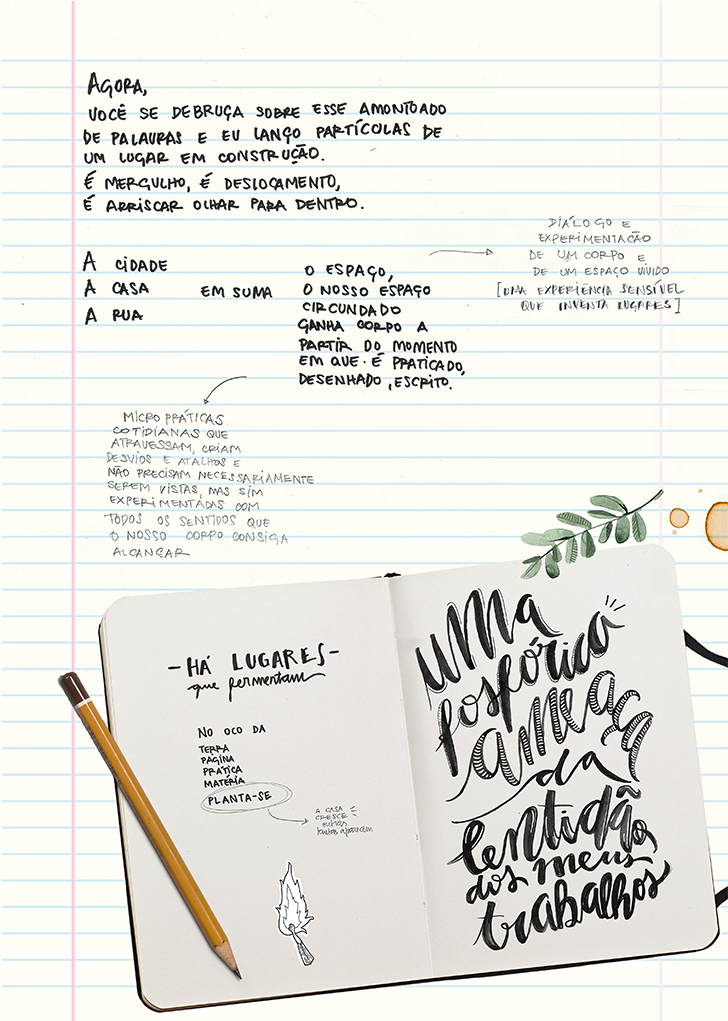 AGORA,
VOCÊ SE DEBRUÇA SOBRE ESSE AMONTOADO
DE PALAVRAS E EU LANÇO PARTÍCULAS DE
UM LUGAR EM CONSTRUÇÃO.
É MERGULHO, É DESLOCAMENTO,
É ARRISCAR OLHAR PARA DENTRO.
A CIDADE
A CASA
A RUA
EM SUMA
O ESPAÇO,
O NOSSO ESPAÇO
CIRCUNDADO
GANHA CORPO A
PARTIR DO MOMENTO
EM QUE É PRATICADO,
DESENHADO, ESCRITO.
DIÁLOGO E
EXPERIMENTAÇÃO
DE UM CORPO E
DE UM ESPAÇO VIVIDO
[UMA EXPERIÊNCIA SENSÍVEL
QUE INVENTA LUGARES]
MICRO PRÁTICAS
COTIDIANAS QUE
ATRAVESSAM, CRIAM
DESVIOS E ATALHOS E
NÃO PRECISAM NECESSARIAMENTE
SEREM VISTAS, MAS SIM
EXPERIMENTADAS COM
TODOS OS SENTIDOS QUE
O NOSSO CORPO CONSIGA
ALCANÇAR
-HÁ LUGARES-
que fermentam
NO OCO DA
TERRA
PÁGINA
PRÁTICA
MATÉRIA
PLANTA-SE
A CASA
CRESCE
outras
aparecem
uma
fosfórica
ameaça
da
lentidão
dos meus
trabalhos